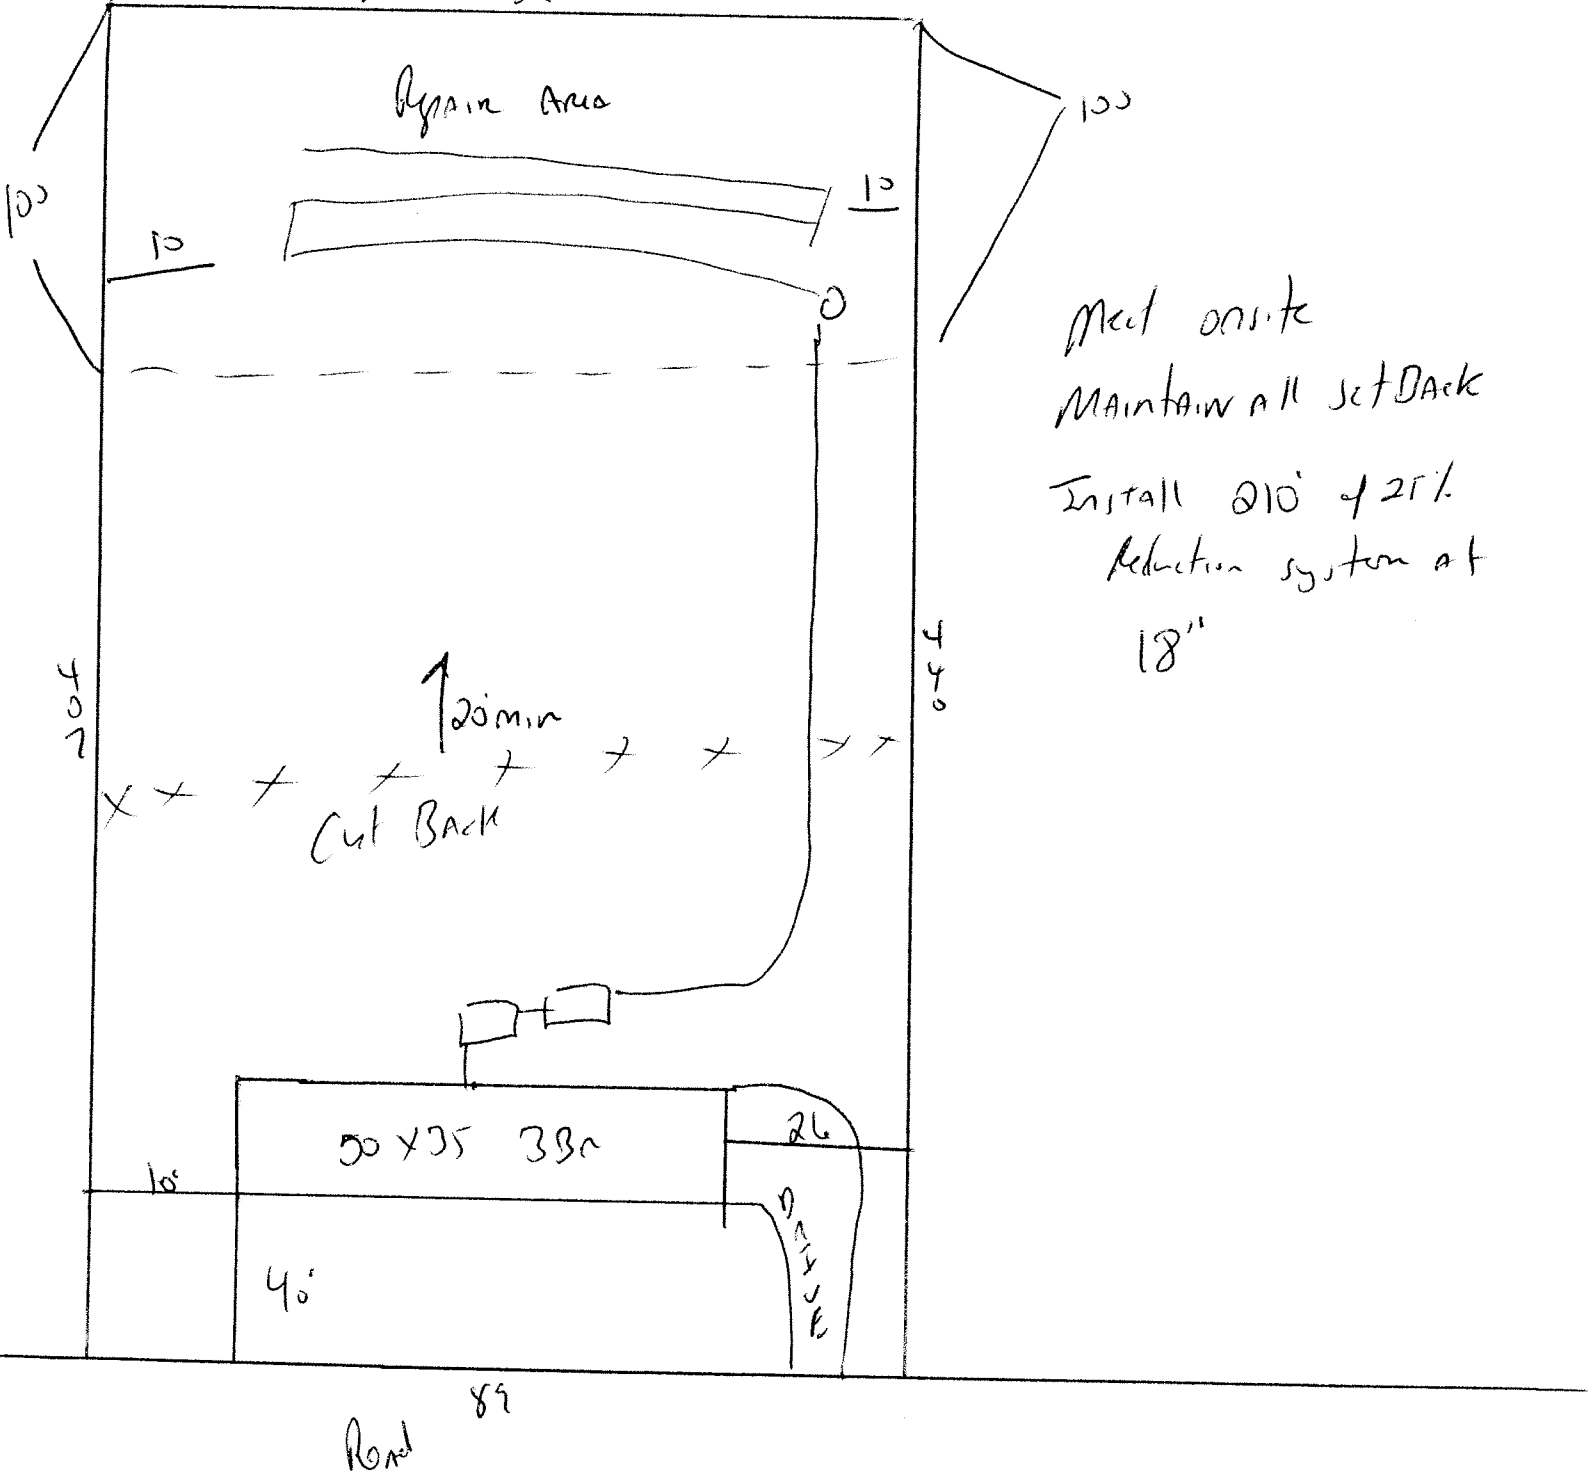 Repair Area
100
100
10
10
Meet onsite
Maintain all setBack
Install 210' of 25%
Reduction system at
18"
407
440
20'min
Cut Back
50 x 35 3Br
26
10'
DRIVE
40'
89
Road